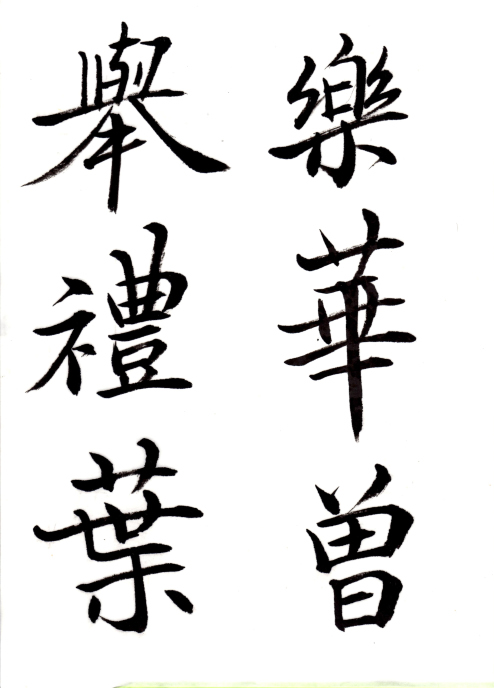 樂華曽
舉禮葉